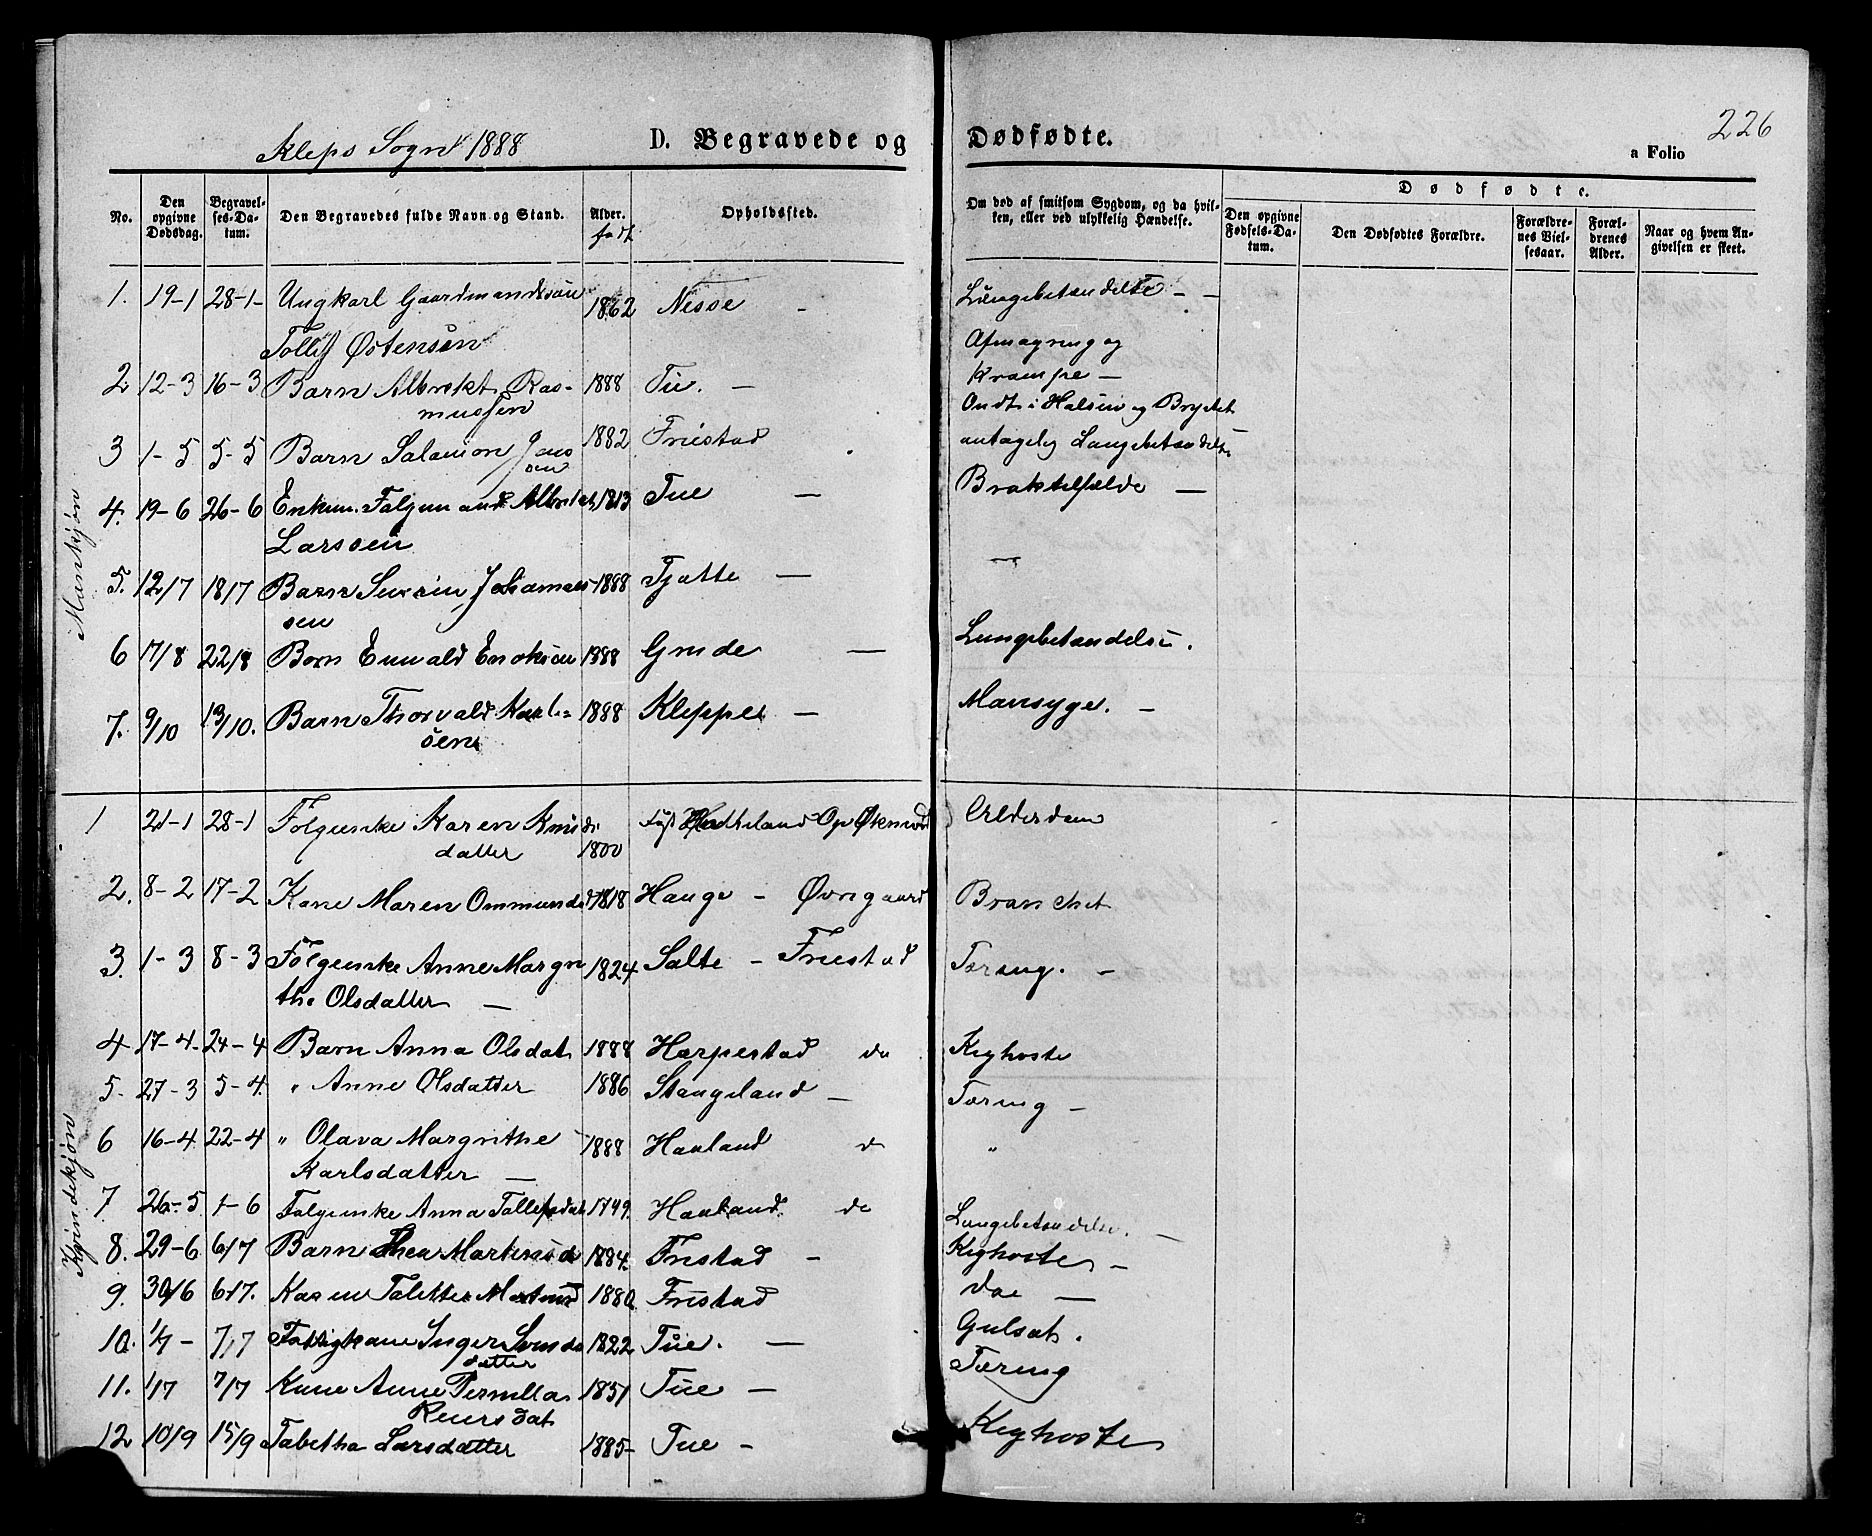 Kleps Sogn 1888 D. Begravede og Dødfødte. 226
a Folio
No. Den opgivne Dødsdag. Begravelses-Datum. Den Begravedes fulde Navn og Stand. Alder. født Opholdssted. Om død af smitsom Sygdom, og da hvilken, eller ved ulykkelig Hændelse. Dødfødte. Den opgivne Fødsels-Datum. Den Dødfødtes Forældre. Forældrenes Vielsesaar. Forældrenes Alder. Naar og hvem Angivelsen er skeet.
Mankjøn
1. 19-1 28-1- Ungkarl Gaardmandssøn 1862 Nesse - Lungebetændelse - -
Tollef Østensen
2 12-3 16-3 Barn Albrekt Ras- 1888 Tu. - Afmagring og
mussen Krampe -
3 1-5 5-5 Barn Salamon Jons 1882 Friestad Ondt i Halsen og Brystet
sen antagelig Lungebetændelse
4. 19-6 26-6 Enkem. Følgemand Albrekt 1813 Tue - Braktilfælde -
Larssen
5. 12/7 18/7 Barn Sverin Johannes- 1888 Tjøtte - -
sen
6 17/8 22/8 Barn Enevald Enoksen 1888 Grude - Lungebetændelse.
7. 9/10 13/10. Barn Thorvald Karl= 1888 Kleppe - Mavesyge. -
sen
Kvindekjøn
1 21-1 28-1 Følgenke Karen Knuds 1800 Hatteland Alderdom
datter
2. 8-2 17-2 Kone Maren Ommundsd 1818 Hauge - Øvregaard Branchet
3. 1-3 8-3 Følgenke Anne Margre 1824 Salte - Friestad Tæring. -
the Olsdatter -
4 17-4- 24-4 Barn Anna Olsdat 1888 Harpestad do Kighoste
5- 27-3 5-4. " Anne Olsdatter 1886 Stangeland - Tæring -
6 16-4 22-4 " Olava Margrithe 1888 Haaland do "
Karlsdatter -
7 26-5 1-6 Følgenke Anna Tollefsdat 1799. Haaland do Lungebetændelse. -
8. 29-6 6/7 Barn Thea Martinsd 1884. Fristad - Kighoste -
9. 30/6 6/7. Karen Taletta Martinsd 1880 Fristad do -
10. 1/7- 7/7 Fattigkone Inger Svends 1822 Tue. - Gulsot.
datter
11. 1/7 7/7 Kone Anne Pernilla 1851 Tue - Tæring
Reiersdat
12 10/9 15/9 Tabetha Larsdatter 1885- Tue - Kighoste